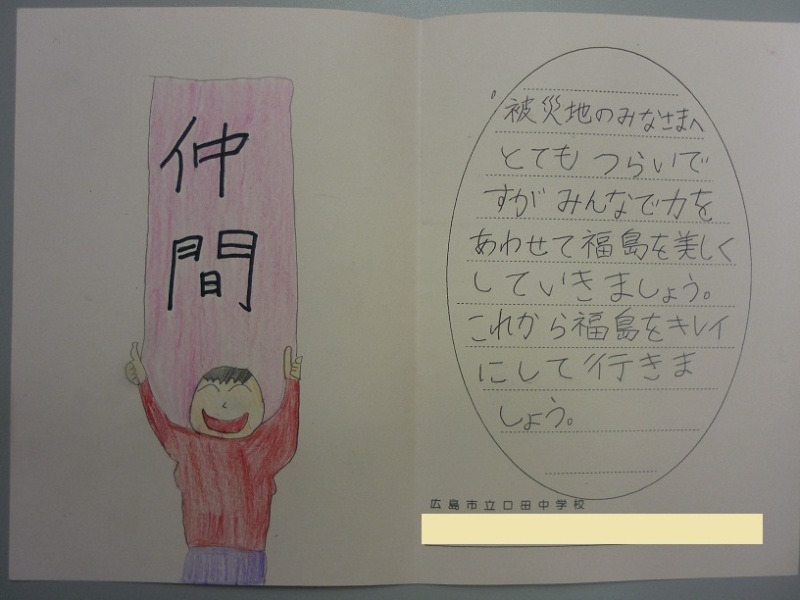 仲
間
被災地のみなさまへ
とても つらいで
すが みんなで力を
あわせて福島を美しく
していきましょう。
これから福島をキレイ
にして行きま
しょう。
広島市立口田中学校